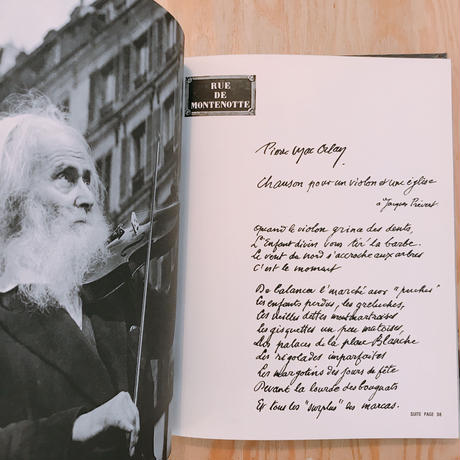 RUE
DE
MONTENOTTE
Pierre Mac Orlan
Chanson pour un violon et une église
à Jacques Prévert
Quand le violon grince des dents,
L'Enfant divin vous tir' la barbe.
Le vent du nord s'accroche aux arbres
C'est le moment
De balancer l'marché aux "puches"
Les enfants perdus, les greluches,
Ces vieilles dettes montmartroises
Les gisquettes un peu matoises,
Les palaces de la place Blanche
Les rigolades imparfaites
Les margotins des jours de fête
Devant la lourde des bougnats
Et tous les "surplus" des marcas.
SUITE PAGE 38